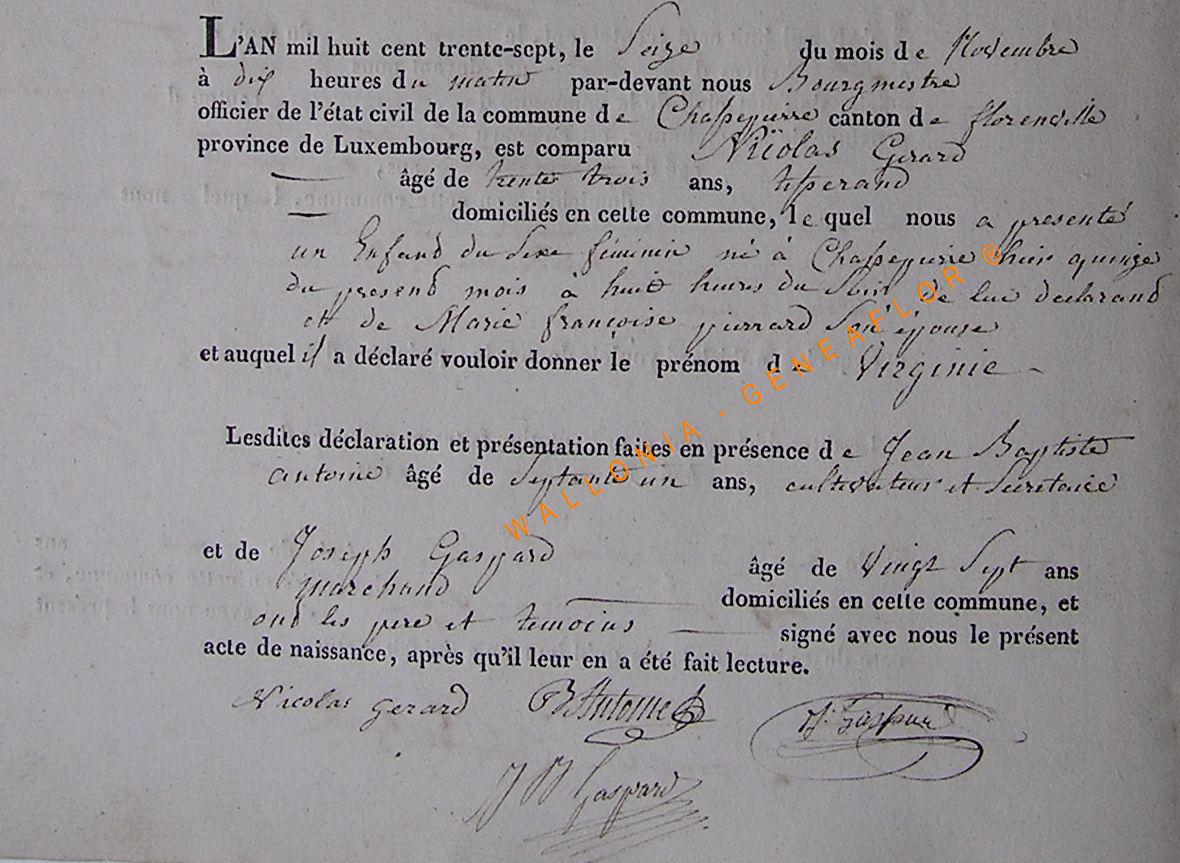 L'AN mil huit cent trente-sept, le Seize du mois de Novembre
à dix heures du matin par-devant nous Bourgmestre
officier de l'état civil de la commune de Chassepierre canton de florenville
province de Luxembourg, est comparu Nicolas Gerard
âgé de trente trois ans, tisserand
domiciliés en cette commune, le quel nous a presenté
un Enfand du Sexe féminin né à Chassepierre hier quinze
du presend mois à huit heures du Soir de lui declarand
et de Marie françoise pierrard Son épouse
et auquel il a déclaré vouloir donner le prénom de Virginie
Lesdites déclaration et présentation faites en présence de Jean Baptiste
antoine âgé de Septante un ans, cultivateur et Secretaire
et de Joseph Gaspard âgé de Vingt Sept ans
marchand domiciliés en cette commune, et
ond les pere et temoins signé avec nous le présent
acte de naissance, après qu'il leur en a été fait lecture.
Nicolas gerard JB Antoine J. Gaspard
J B Gaspard
WALLONIA - GENEAFLOR @